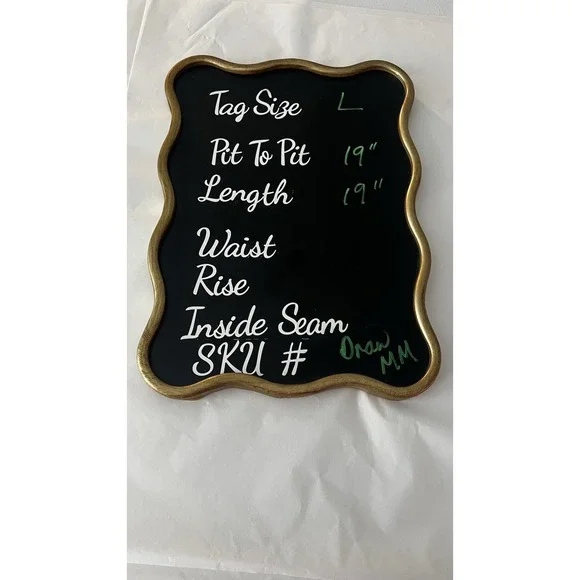 Tag Size L
Pit To Pit 19"
Length 19"
Waist
Rise
Inside Seam
SKU # Draw
MM